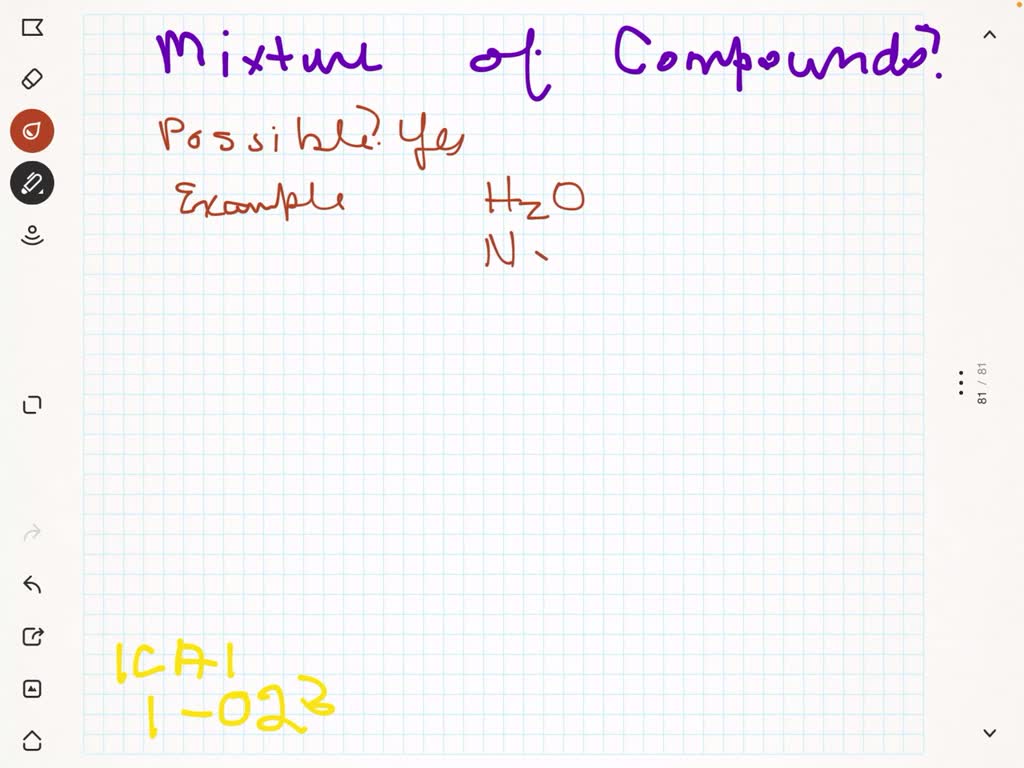 Mixture of Compounds?
Possible? Yes
Example H₂O
N
81 / 81
ICAI
1-023